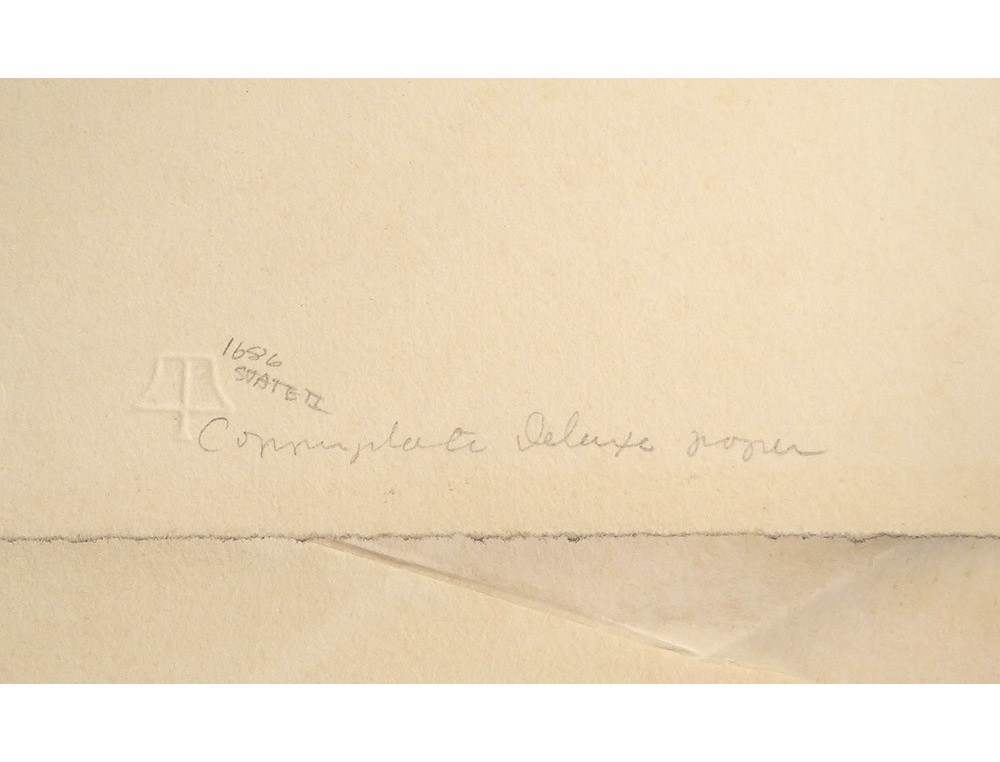 1686
STATE II
Copperplate Deluxe paper